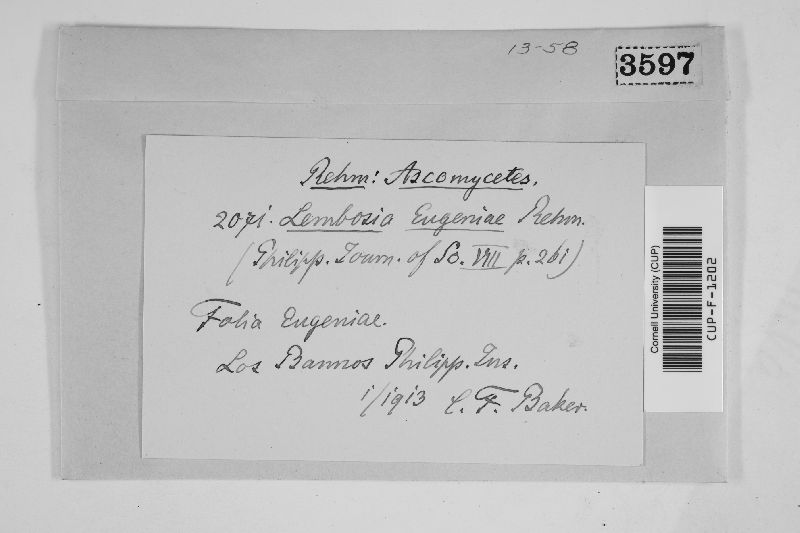 13-58
3597
Rehm: Ascomycetes.
2071. Lembosia Eugeniae Rehm.
(Philipp. Journ. of Sc. VIII p. 261)
Folia Eugeniae.
Los Bannos Philipp. Ins.
1/1913 C. F. Baker.
Cornell University (CUP)
CUP-F-1202